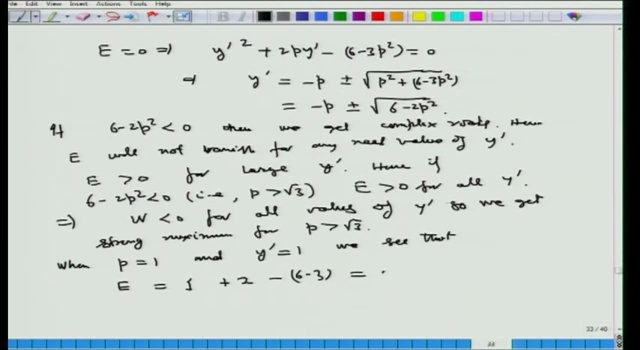 Edit View Insert Actions Tools Help
E = 0 ⇒ y'² + 2py' - (6-3p²) = 0
⇒ y' = -p ± √(p² + (6-3p²))
= -p ± √(6-2p²)
If 6-2p² < 0 then we get complex roots. Hence
E will not vanish for any real value of y'.
E > 0 for large y'. Hence if
6-2p² < 0 (i.e., p > √3) E > 0 for all y'.
⇒ W < 0 for all values of y' so we get
strong maximum for p > √3.
When p = 1 and y' = 1 we see that
E = 1 + 2 - (6-3) =
33 / 40
33